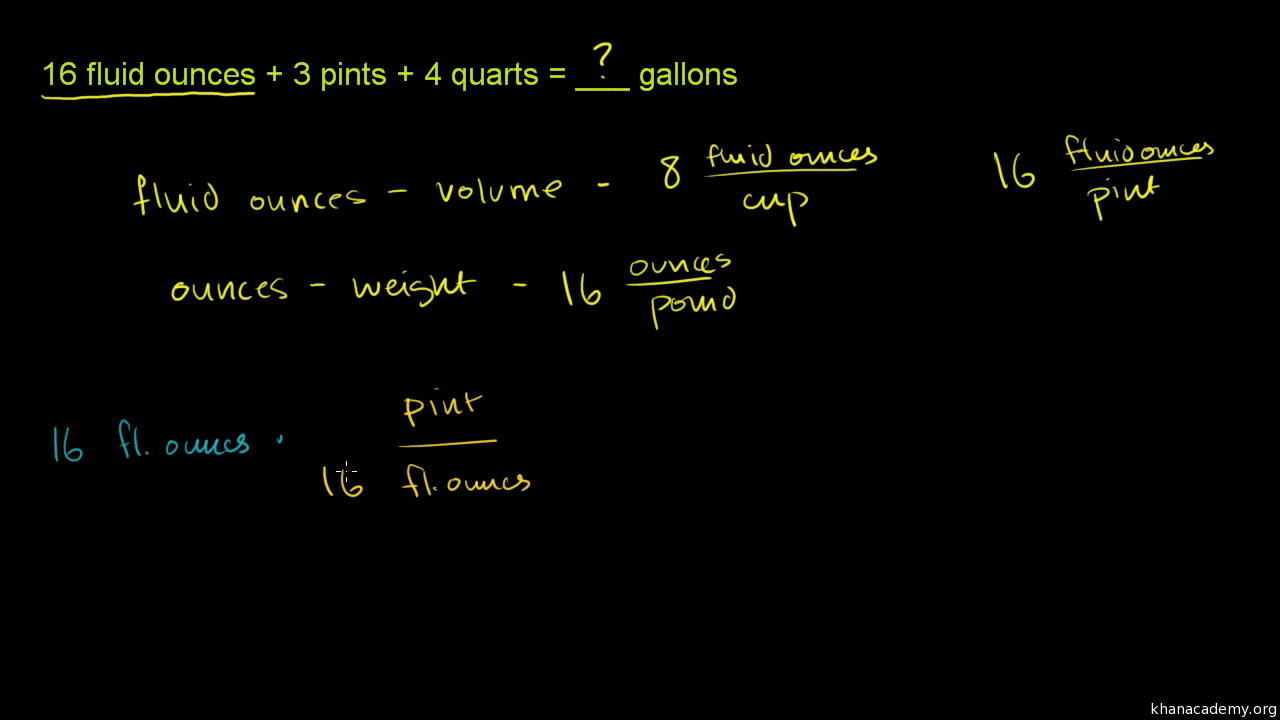 16 fluid ounces + 3 pints + 4 quarts = ? gallons
fluid ounces - volume - 8 fluid ounces / cup 16 fluid ounces / pint
ounces - weight - 16 ounces / pound
16 fl. ounces · pint / 16 fl. ounces
khanacademy.org